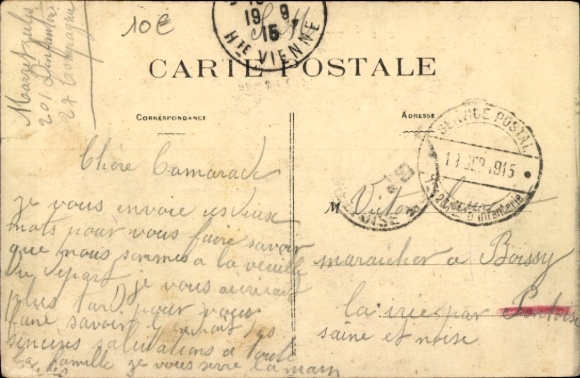 10€
19 9
15
Hte VIENNE
201 D'infanterie
27 Compagnie
CARTE POSTALE
CORRESPONDANCE
ADRESSE
SERVICE POSTAL
1915
d'Infanterie
Chère Camarade
je vous envoie ces deux
mots pour vous faire savoir
que nous sommes a la veille
du départ je vous
plus tard pour vous
faire savoir
sincères salutations a toute
la famille je vous serre la main
M Victor
maraicher a Boissy
la par Pontoise
saine et noise